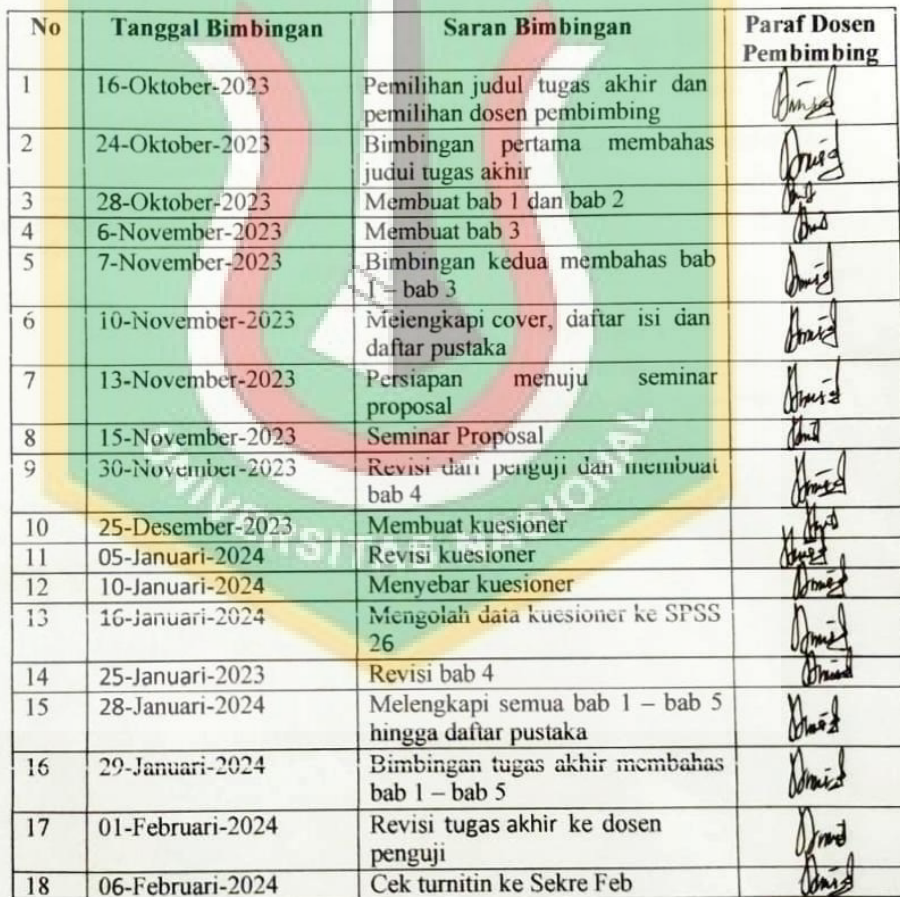 No Tanggal Bimbingan Saran Bimbingan Paraf Dosen
Pembimbing
1 16-Oktober-2023 Pemilihan judul tugas akhir dan
pemilihan dosen pembimbing
2 24-Oktober-2023 Bimbingan pertama membahas
judul tugas akhir
3 28-Oktober-2023 Membuat bab 1 dan bab 2
4 6-November-2023 Membuat bab 3
5 7-November-2023 Bimbingan kedua membahas bab
1 – bab 3
6 10-November-2023 Melengkapi cover, daftar isi dan
daftar pustaka
7 13-November-2023 Persiapan menuju seminar
proposal
8 15-November-2023 Seminar Proposal
9 30-November-2023 Revisi dari penguji dan membuat
bab 4
10 25-Desember-2023 Membuat kuesioner
11 05-Januari-2024 Revisi kuesioner
12 10-Januari-2024 Menyebar kuesioner
13 16-Januari-2024 Mengolah data kuesioner ke SPSS
26
14 25-Januari-2023 Revisi bab 4
15 28-Januari-2024 Melengkapi semua bab 1 – bab 5
hingga daftar pustaka
16 29-Januari-2024 Bimbingan tugas akhir membahas
bab 1 – bab 5
17 01-Februari-2024 Revisi tugas akhir ke dosen
penguji
18 06-Februari-2024 Cek turnitin ke Sekre Feb
UNIVERSITAS NASIONAL